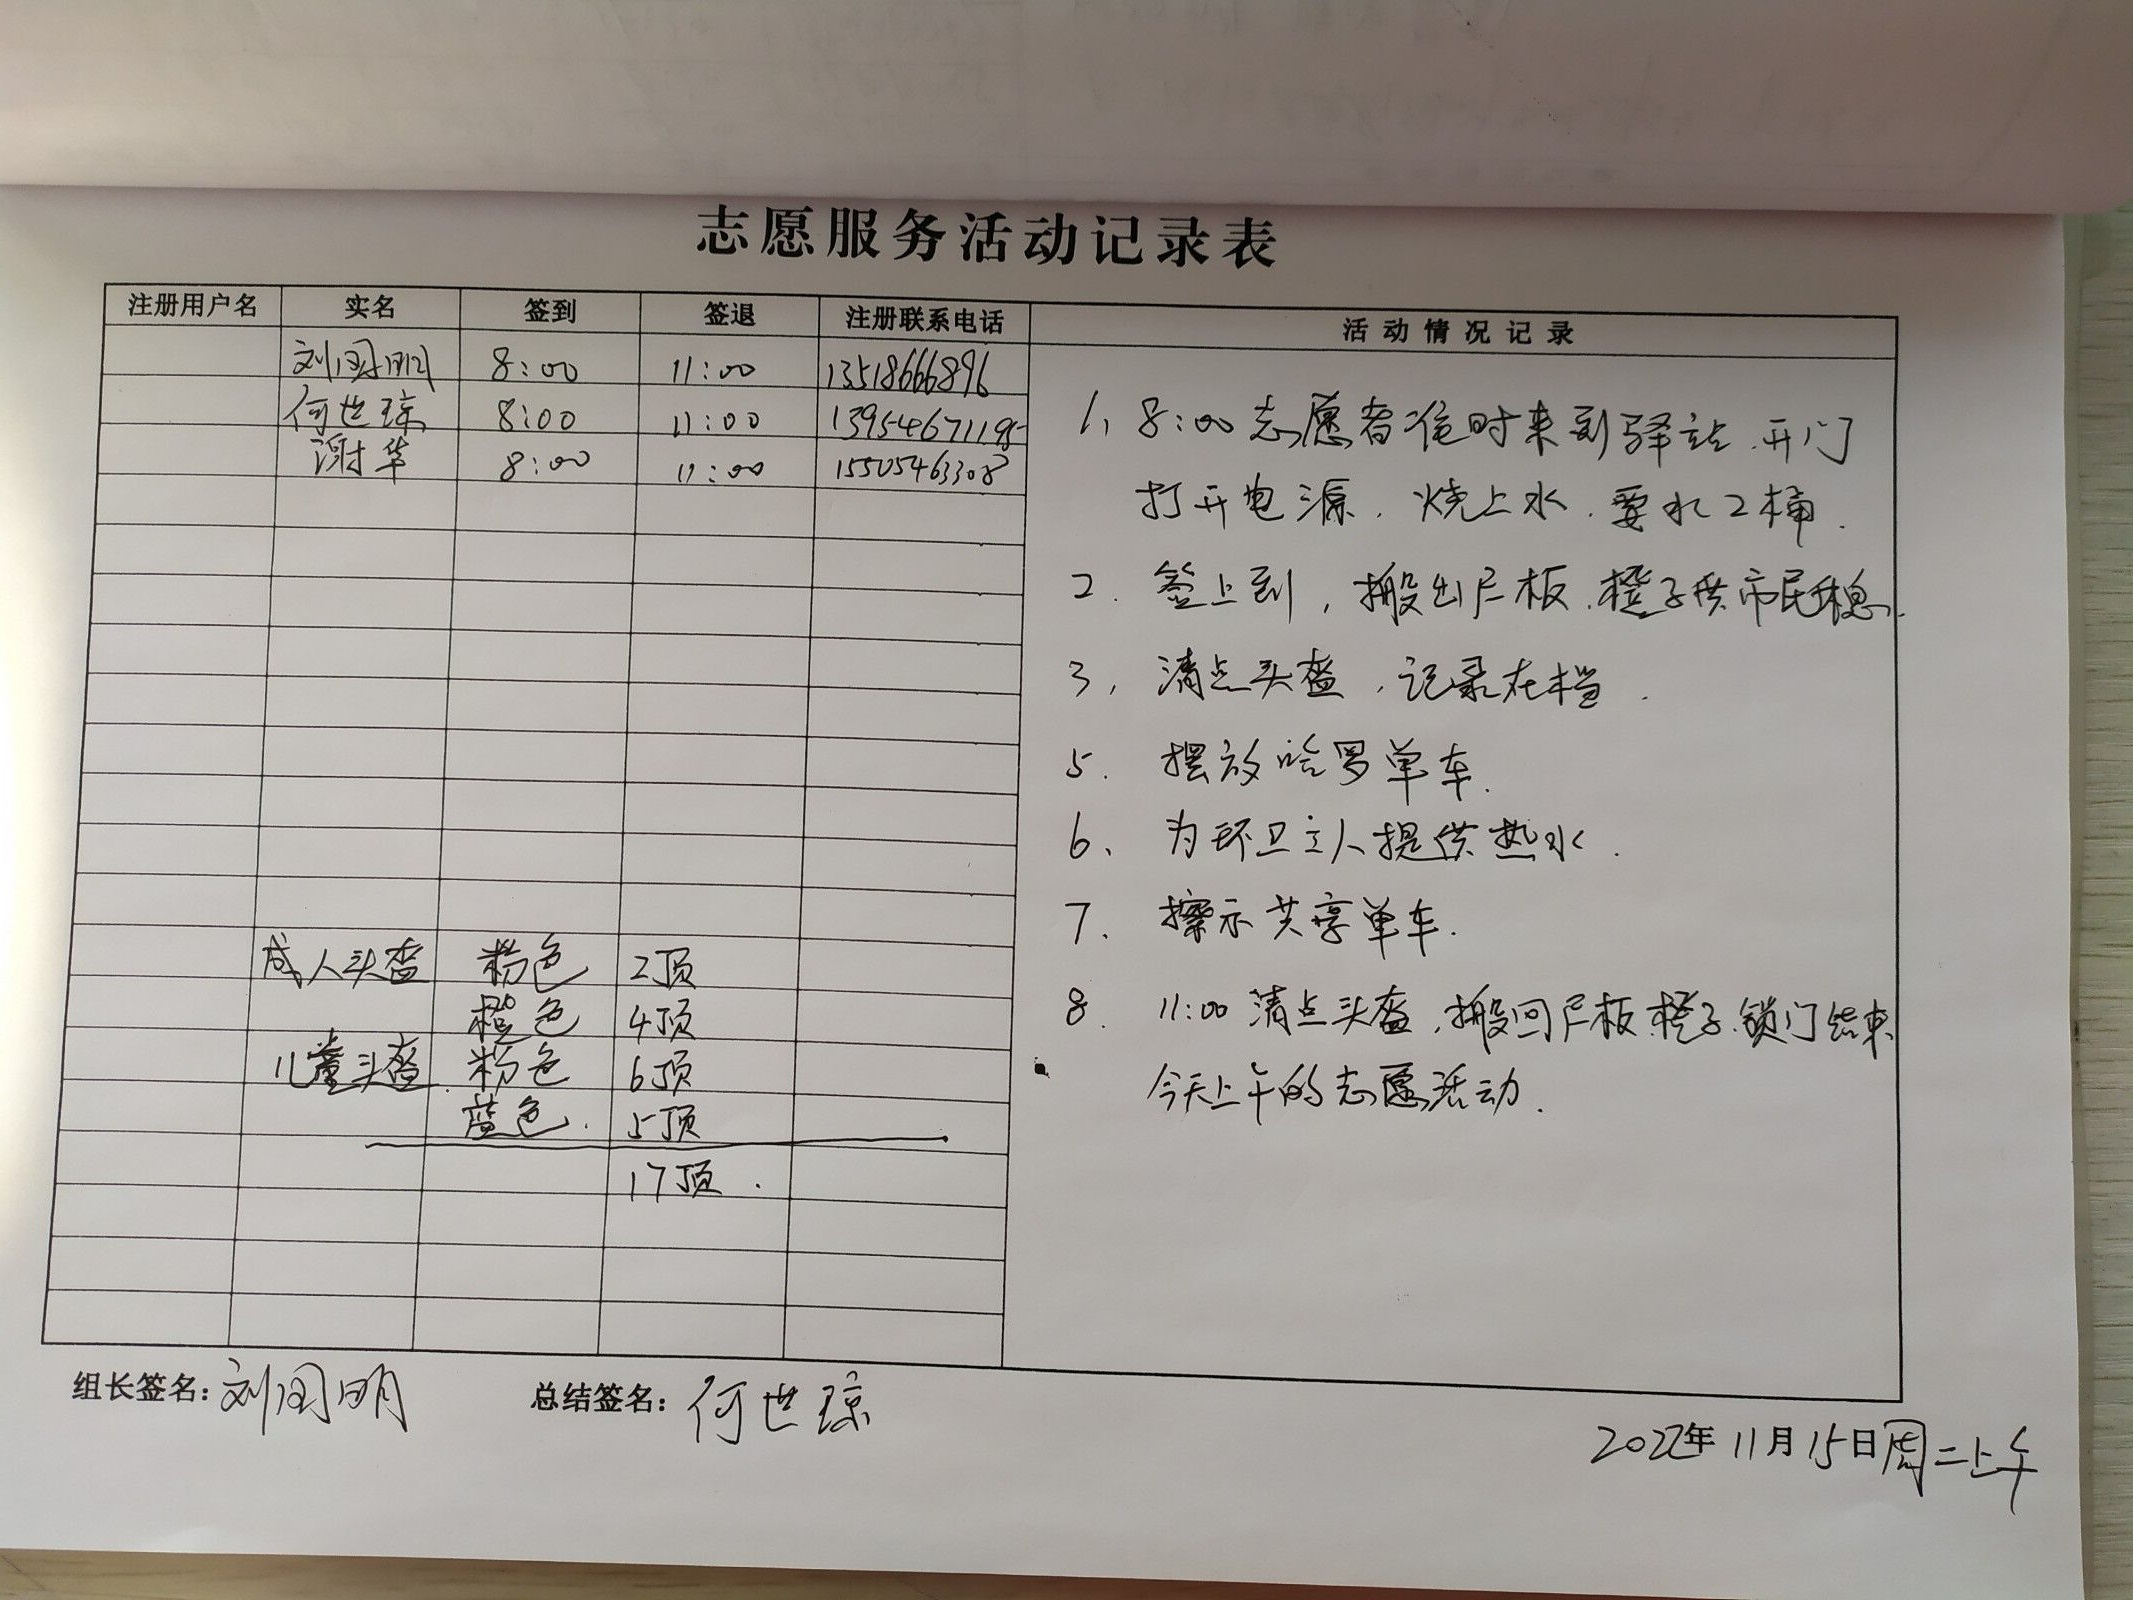 志愿服务活动记录表
注册用户名 实名 签到 签退 注册联系电话 活动情况记录
刘国明 8:00 11:00 13518666896
何世琼 8:00 11:00 13954671195
谢华 8:00 11:00 15505463308
成人头盔 粉色 2顶
橙色 4顶
儿童头盔. 粉色 6顶
蓝色. 5顶
17顶.
1、8:00志愿者准时来到驿站.开门
打开电源.烧上水.要水2桶.
2.签上到,搬出展板.橙子供市民休息.
3,清点头盔,记录在档.
5.摆放哈罗单车.
6、为环卫工人提供热水.
7、擦示共享单车.
8.11:00清点头盔,搬回展板橙子.锁门结束
今天上午的志愿活动.
组长签名:刘国明 总结签名:何世琼
2022年11月15日周二上午